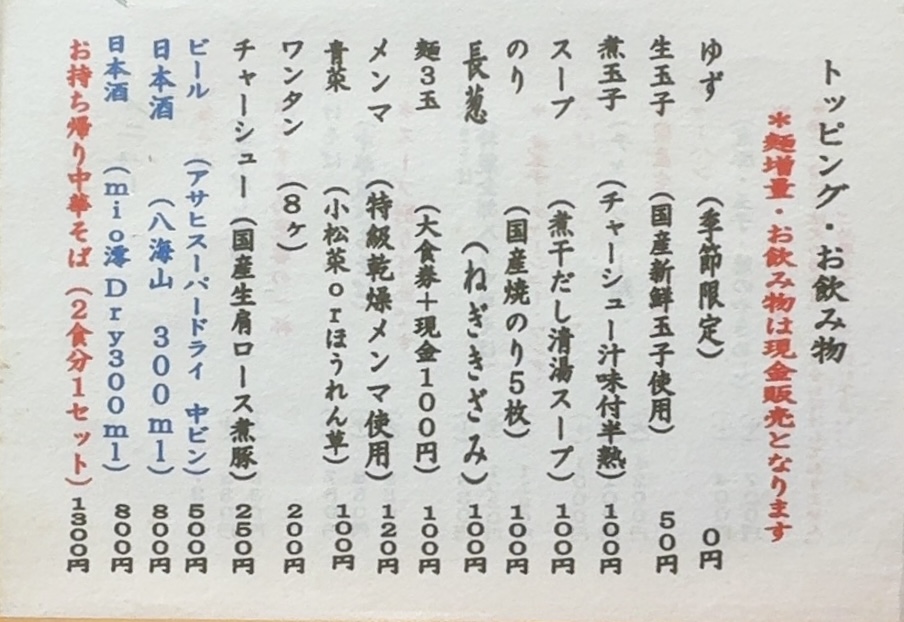 トッピング・お飲み物
＊麺増量・お飲み物は現金販売となります
ゆず （季節限定） ０円
生玉子 （国産新鮮玉子使用） ５０円
煮玉子 （チャーシュー汁味付半熟） １００円
スープ （煮干だし清湯スープ） １００円
のり （国産焼のり５枚） １００円
長葱 （ねぎきざみ） １００円
麺３玉 （大食券＋現金１００円） １００円
メンマ （特級乾燥メンマ使用） １２０円
青菜 （小松菜ｏｒほうれん草） １００円
ワンタン （８ヶ） ２００円
チャーシュー （国産生肩ロース煮豚） ２５０円
ビール （アサヒスーパードライ 中ビン） ５００円
日本酒 （八海山 ３００ｍｌ） ８００円
日本酒 （ｍｉｏ澪Ｄｒｙ３００ｍｌ） ８００円
お持ち帰り中華そば （２食分１セット） １３００円